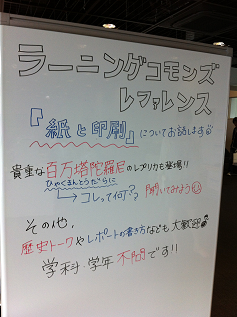 ラーニングコモンズ
レファレンス
『紙と印刷』についてお話します
貴重な百万塔陀羅尼のレプリカも登場!!
ひゃくまんとうだらに
→コレって何?? 聞いてみよう
その他、
歴史トークやレポートの書き方なども大歓迎
学科・学年不問です!!